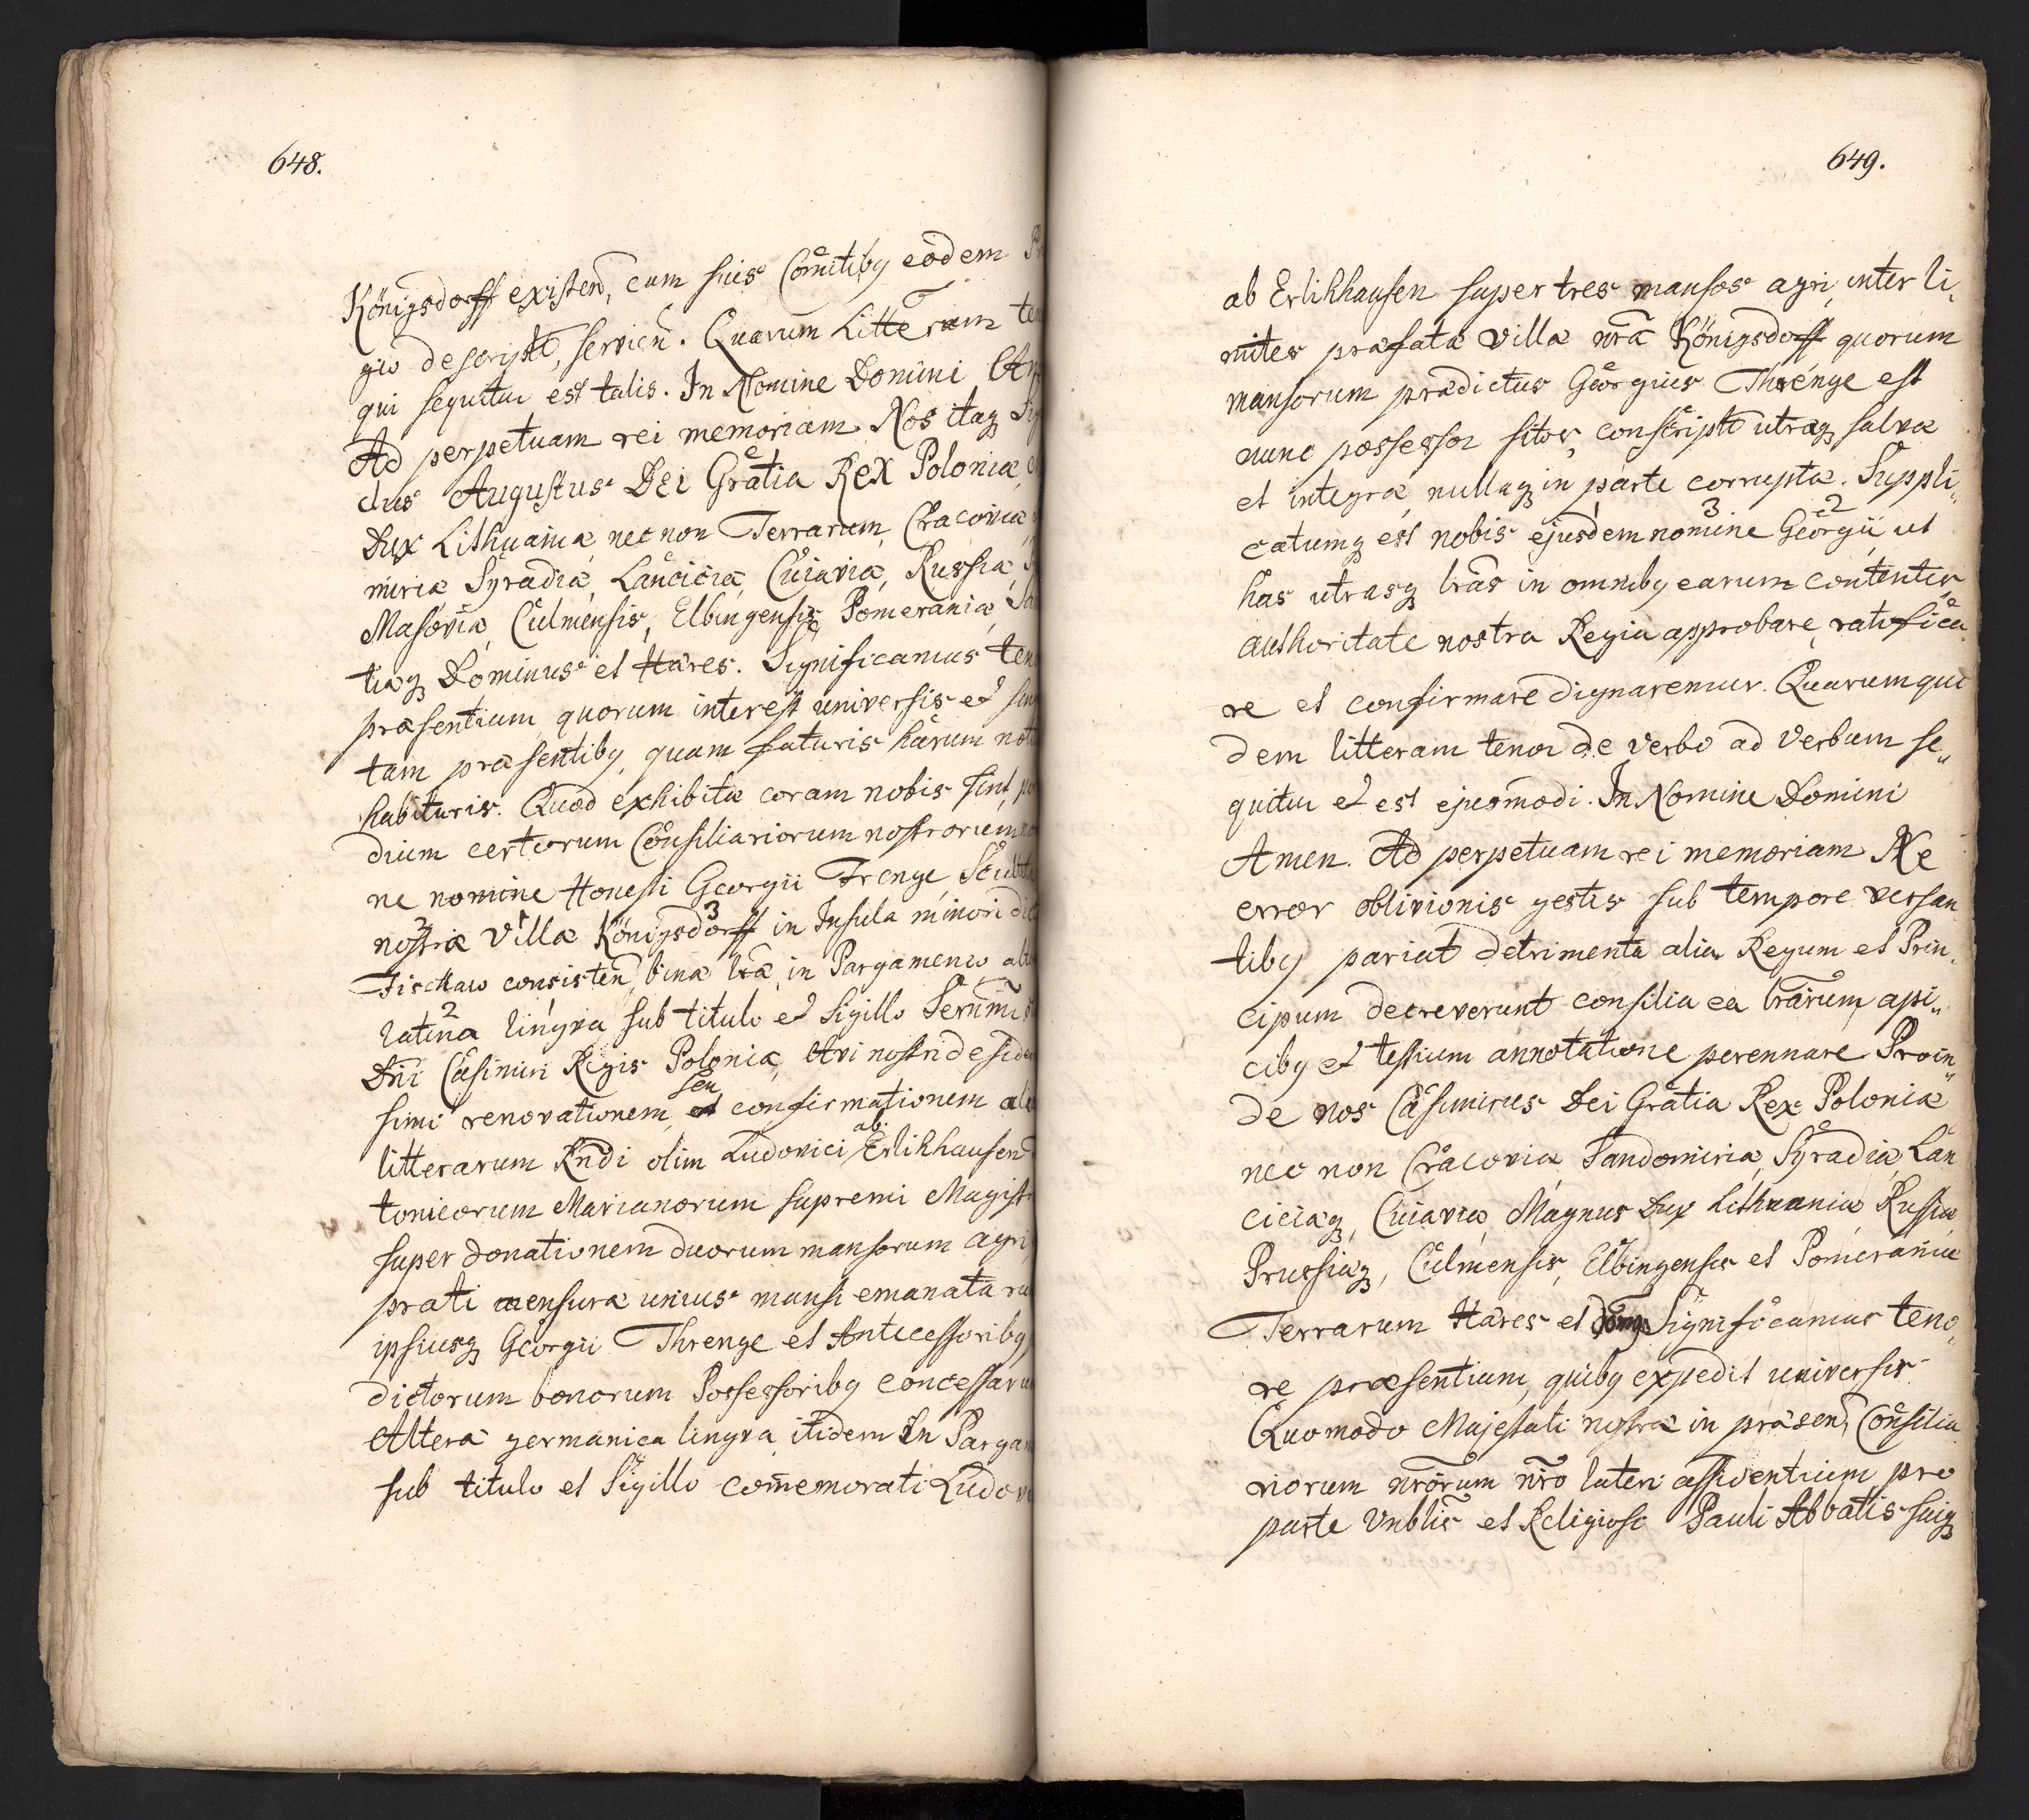 648.
Königsdorff existen, cum suis Comitiby eodem
gio descript, servien. Quarum Litterum
qui sequitur est talis. In Nomine Domini
Ad perpetuam rei memoriam. Nos itaq
dus Augustus Dei Gratia Rex Poloniæ
Dux Lithuaniæ nec non Terrarum Cracoviæ
miriæ Syradiæ, Lanciciæ, Cuiaviæ, Russiæ
Masoviæ, Culmensis, Elbingensisq Pomeraniæ
tiæq Dominus et Hæres. Significamus
præsentium quorum interest universis et
tam præsentiby, quam futuris harum
habituris. Quod exhibitæ coram nobis sint
dium certorum Consiliariorum nostrorum
ne nomine Honesti Georgii Trenge
nostræ Villæ Königsdorff in Insula minori
Fischaw consisten, binæ lræ in Pargameno
latina lingva sub titulo et Sigillo Sernmi
Dni Casimiri Regis Poloniæ, Avi nostri
simi renovationem seu confirmationem
litterarum Rndi olim Ludovici ab Erlikhausen
tonicorum Marianorum supremi
super donationem duorum mansorum agri
prati mensuræ unius mansi emanata
ipsiusq Georgii Threnge et Antecessoriby
dictorum bonorum Possessoriby
Altera germanica lingva itidem In
sub titulo et Sigillo comemorati
649.
ab Erlikhausen super tres mansos agri inter li„
mites præfatæ Villæ nræ Königsdorff quorum
mansorum prædictus Georgius Threnge est
nunc possessor sitos, conscript utræq salvæ
et integræ nullaq in parte corruptæ. Suppli„
catumq est nobis ejusdem nomine 3 Georgii 2 ut
has utrasq lras in omniby earum contentis
authoritate nostra Regia approbare, ratifica
re et confirmare dignaremur. Quarum qui
dem litteram tenor de Verbo ad Verbum se„
quitur et est ejusmodi. In Nomine Domini
Amen. Ad perpetuam rei memoriam Ne
error oblivionis gestis sub tempore versan
tiby pariat detrimenta alia Regum et Prin„
cipum decreverunt consilia ea lrarum api„
ciby et testium annotatione perennare Proin„
de nos Casimirus Dei Gratia Rex Poloniæ
nec non Cracoviæ, Sandomiriæ, Syradiæ, Lan
ciciæq, Cuiaviæ Magnus Dux Lithuaniæ Russiæ
Prussiæq, Culmensis, Elbingensis et Pomeraniæ
Terrarum Hæres et Significamus teno„
re præsentium, quiby expedit universis
Quomodo Majestati nostræ in præsen, Consilia
riorum nrorum nro lateri assidentium pro
parte Vnblis et Religiosi Pauli Abbatis suiq